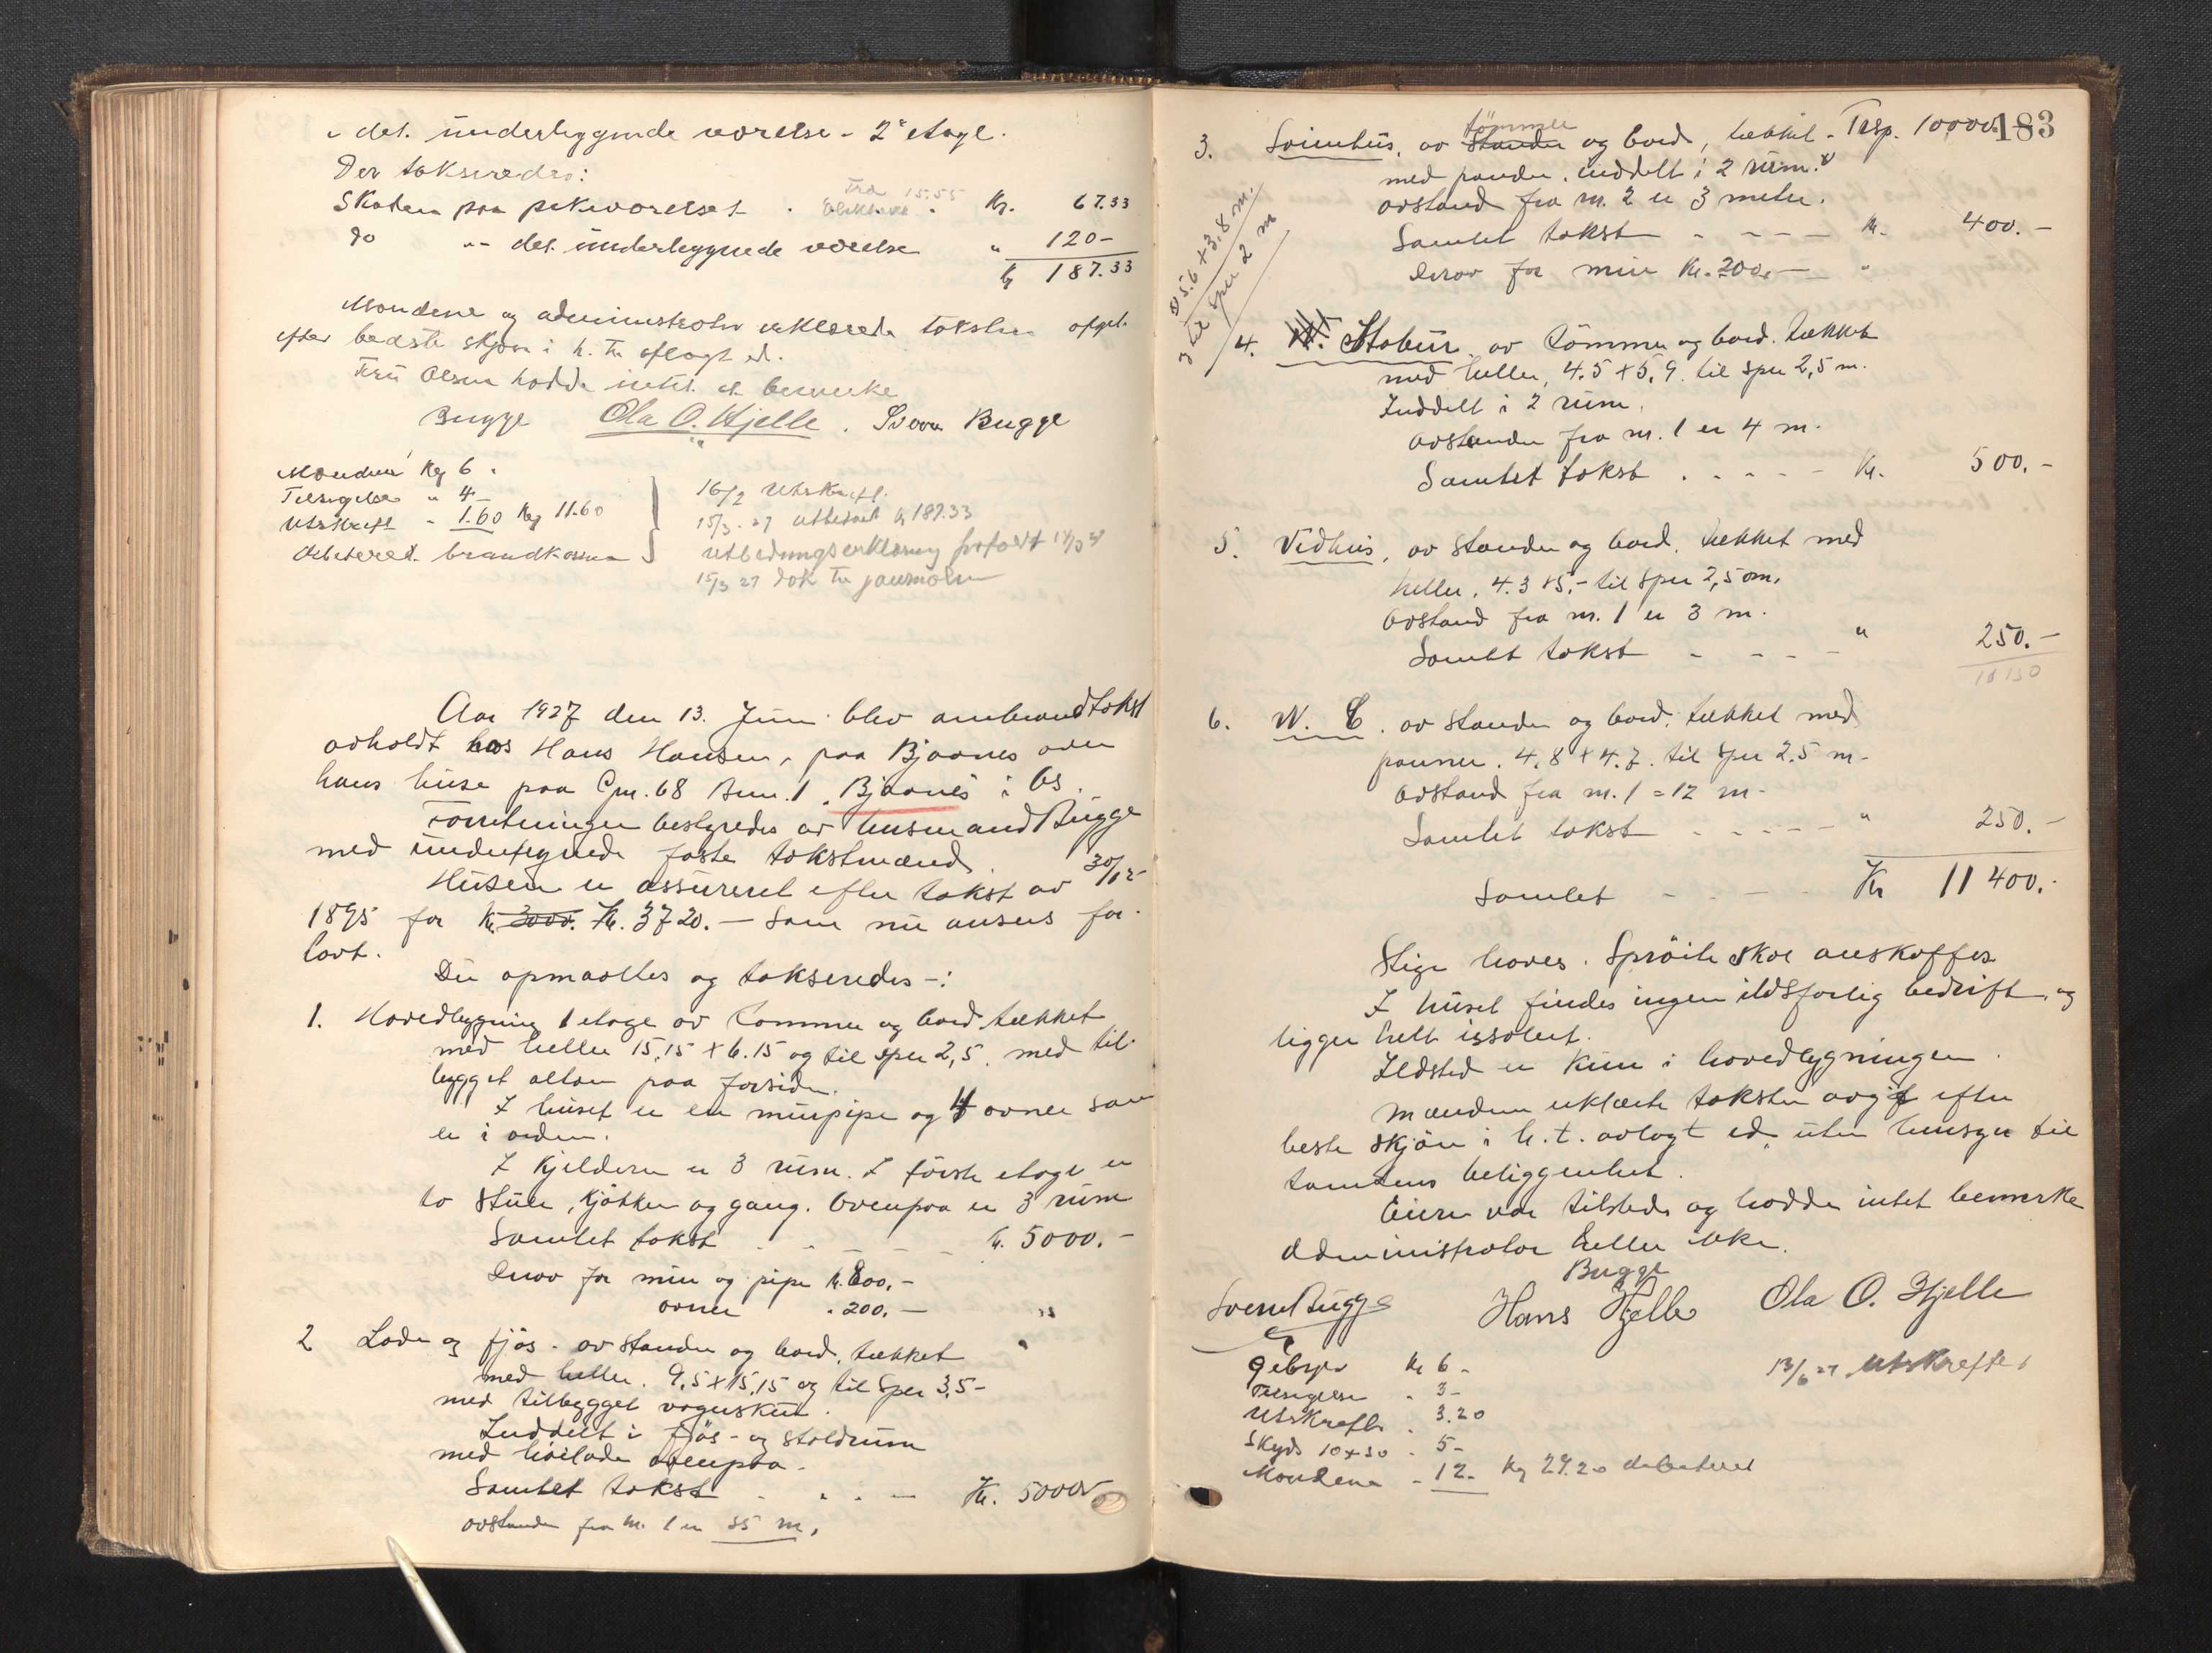 i det underliggende værelse i 2den etage.
Der takseredes:
Skaden paa pikeværelset . Kr. 67.33
do "- det underliggende værelse " 120-
Kr 187.33
Mændene og administrator erklærede taksten afgit
efter bedste skjøn i h. t. aflagt ed.
Fru Olsen hadde intet at bemerke
Bugge Ola O. Hjelle. Sverre Bugge
Mændene Kr 6.
Tilsigelse " 4-
Utskrift - 1.60 Kr 11.60
Debiteret brandkassen
16/2 Utskrift.
15/3-27 utbetalt kr 187.33
Utbedringserklæring
15/3 27 dok til journalen
Aar 1927 den 13. Juni blev ombrandtakst
avholdt hos Hans Hansen, paa Bjaanes over
hans huse paa Gnr. 68 Bnr. 1 Bjaanes i Os.
Forretningen bestyredes av lensmand Bugge
med undertegnede faste takstmænd.
Husene er assureret efter takst av 30/12-
1895 for kr. 3000. Kr. 3720.- som nu ansees for
lavt.
Der opmaaltes og takseredes -:
1. Hovedbygning 1 etage av tømmer og bord tækket
med heller 15,15 x 6.15 og til sper 2,5. med til-
bygget altan paa forsiden.
I huset er en murpipe og 4 ovner som
er i orden.
I kjelderen er 3 rum. I første etage er
to stuer, kjøkken og gang. Ovenpaa er 3 rum
Samlet takst . - - - - kr. 5000.-
Derav for mur og pipe kr. 800.-
ovner " 200.-
2 Lade og fjøs. av stander og bord, tækket
med heller. 9,5 x 15,15 og til sper 3,5-
med tilbygget vognskur.
Inddelt i fjøs- og staldrum
med høilade ovenpaa.
Samlet takst . . . - Kr. 5000
avstanden fra nr. 1 er 35 m.
183
Trsp. 10000.
3. Svinehus, av stander tømmer og bord, tækket
med pander. inddelt i 2 rum. x
avstand fra nr. 2 er 3 meter.
Samlet takst - - - - Kr. 400.-
Derav for mur Kr. 200.-
x) 5.6 x 3,8 m.
og til sper 2 m
4. Stabur av tømmer og bord. Tækket
med heller, 4.5 x 5,9. til sper 2,5 m.
Inddelt i 2 rum.
Avstanden fra nr. 1 er 4 m.
Samlet takst . . - - - Kr. 500.-
5. Vedhus, av stander og bord. Tækket med
heller. 4.3 x 5,- til sper 2,5 m.
Avstand fra nr. 1 er 3 m.
Samlet takst - - - - " 250.-
11150
6. W. C. av stander og bord. tækket med
panner. 4,8 x 4.7. til sper 2.5 m-
Avstand fra nr. 1 = 12 m-
Samlet takst - - - - " 250.-
Samlet - - - - Kr 11400.-
Stige haves. Sprøite skal anskaffes.
I huset findes ingen ildsfarlig bedrift, og
ligger helt issolert.
Ildsted er kun i hovedbygningen.
Mændene erklærte taksten avgit efter
beste skjøn i h.t. avlagt ed, uten hensyn til
tomtens beliggenhet.
Eieren var tilstede og hadde intet bemerke
Administrator heller ikke.
Bugge
Sverre Bugge Hans Hjelle Ola O. Hjelle
Gebyr kr 6-
Tilsigelse " 3-
Utskrift . 3.20
Skyds 10 x 50 . 5-
Mændene - 12. Kr 29.20 debiteret
13/6 27 Utskrift